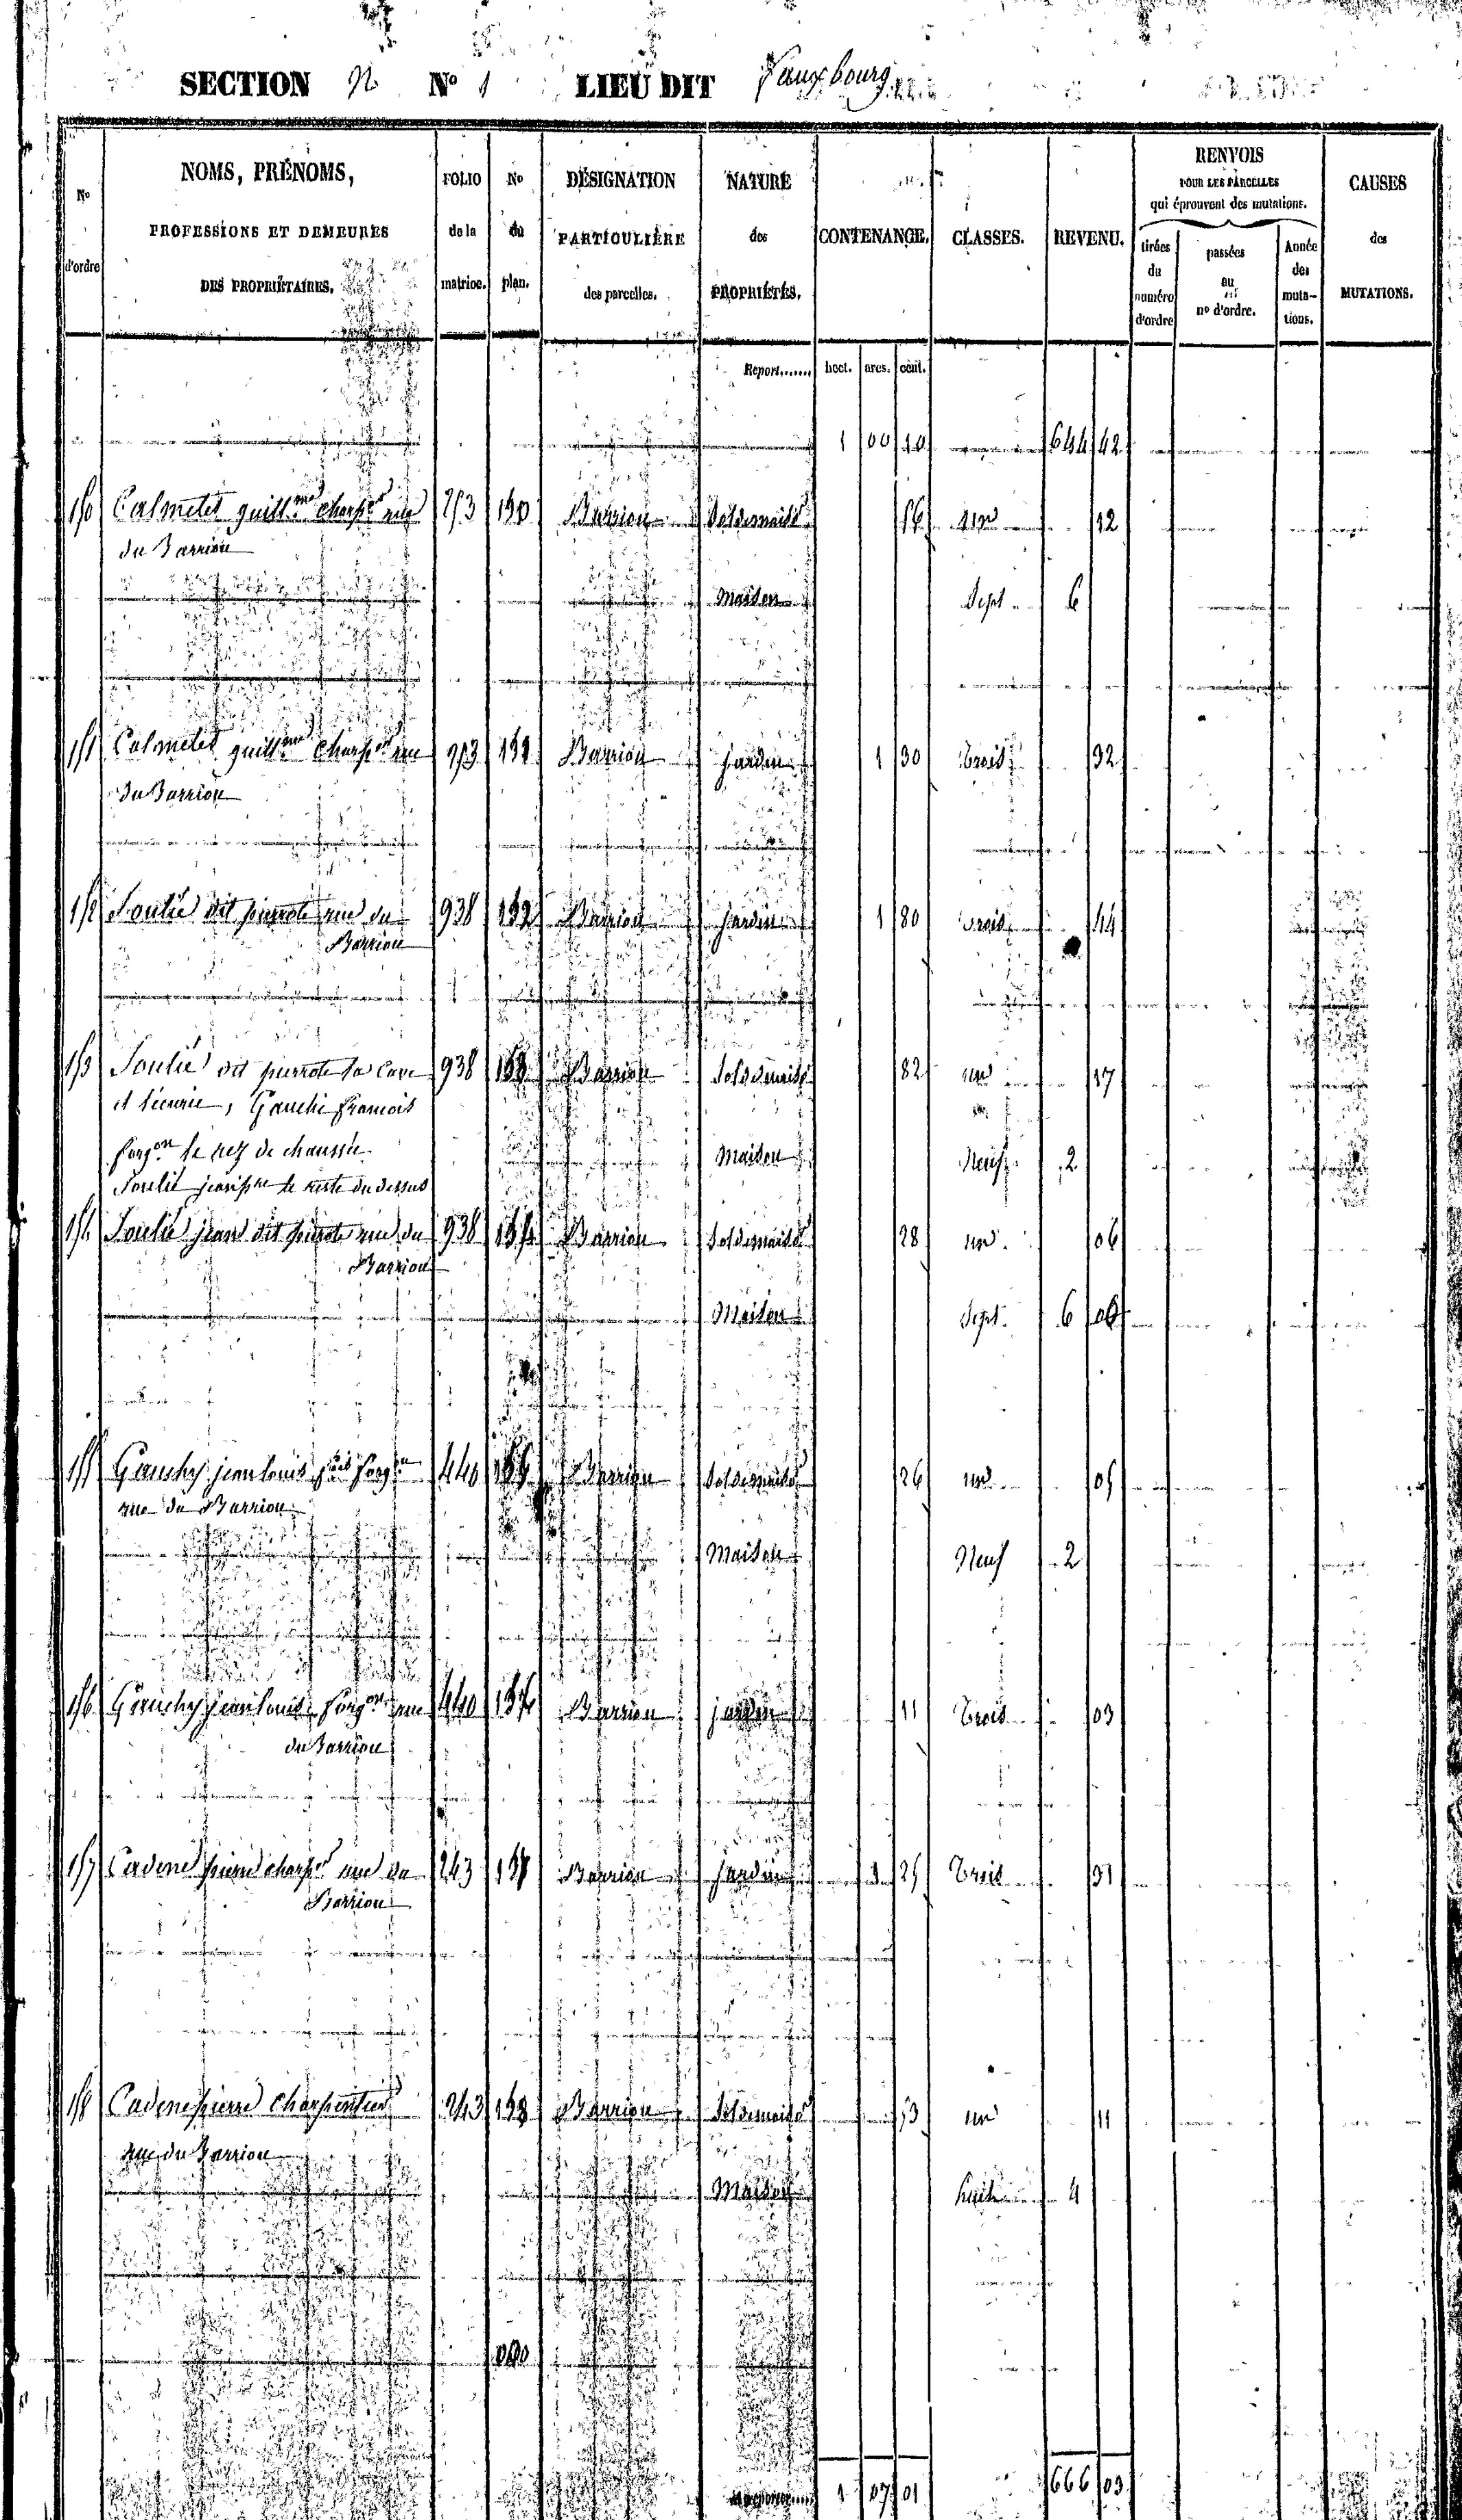 SECTION N No 1 LIEU DIT Fauxbourg
No d'ordre
NOMS, PRÉNOMS,
PROFESSIONS ET DEMEURES
DES PROPRIÉTAIRES.
FOLIO de la matrice.
No du plan.
DÉSIGNATION PARTICULIÈRE des parcelles.
NATURE des PROPRIÉTÉS.
CONTENANCE.
CLASSES.
REVENU.
RENVOIS
POUR LES PARCELLES
qui éprouvent des mutations.
tirées du numéro d'ordre
passées au no d'ordre.
Année des mutations.
CAUSES des MUTATIONS.
Report...... hect. ares. cent.
1 00 644 42
150 Calmetes guillme charpr rue 253 150 Barriou Sol de maison un 12
du Barriou
Maison Sept 6
151 Calmetes guillme charpr rue 253 151 Barriou jardin 1 30 Trois 32
du Barriou
152 Soulié dit pierrote rue du 938 152 Barriou jardin 1 80 Trois 44
Barriou
153 Soulié dit pierrote la cave 938 153 Barriou Sol de maison 82 un 17
et l'écurie, Gauchi françois
forgon le rez de chaussée Maison Neuf 2
Soulié le reste du dessus
154 Soulié jean dit pierrote rue du 938 154 Barriou Sol de maison 28 un 06
Barriou
Maison Sept 6 00
155 Gauchy jean louis forgon 440 Barriou Sol de maison 26 un 05
rue du Barriou
Maison Neuf 2
156 Gauchy jean louis forgon rue 440 Barriou jardin 11 Trois 03
du Barriou
157 Cadene pierre charpr rue du 243 157 Barriou jardin 1 25 Trois 31
Barriou
158 Cadene pierre charpentier 243 158 Barriou Sol de maison 53 un 11
rue du Barriou
Maison huit 4
1 07 01 666 03